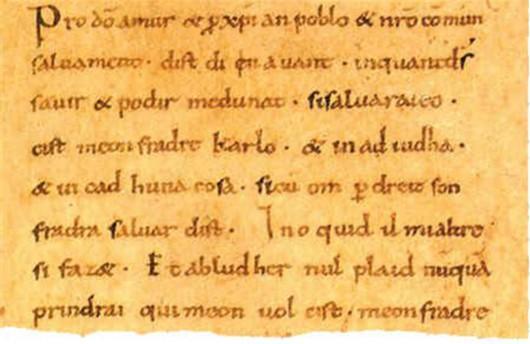 Pro dō amur & ꝓ xp̄ian poblo & nr̄o cōmun
saluament. dist di en auant. inquantdſ
sauir & podir medunat. sisaluaraieo.
cist meon fradre karlo. & in ad iudha.
& in cad huna cosa. sicū om ꝑ dreit son
fradra saluar dist. Ino quid il mialtre
si faz&. Et abludher nul plaid nūquā
prindrai qui meon uol cist. meonfradre